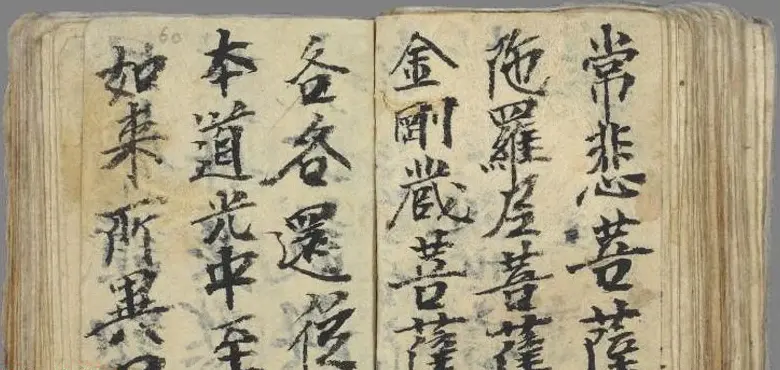 常悲菩薩
陁羅尼菩薩
金剛藏菩薩
各各還從
本道光中至
如来所異
60